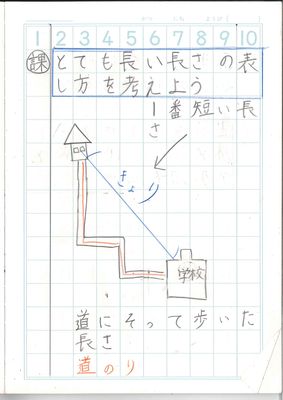 1 2 3 4 5 6 7 8 9 10
課 とても長い長さの表
し方を考えよう
一番短い長
さ
きょり
学校
道にそって歩いた
長さ
道のり